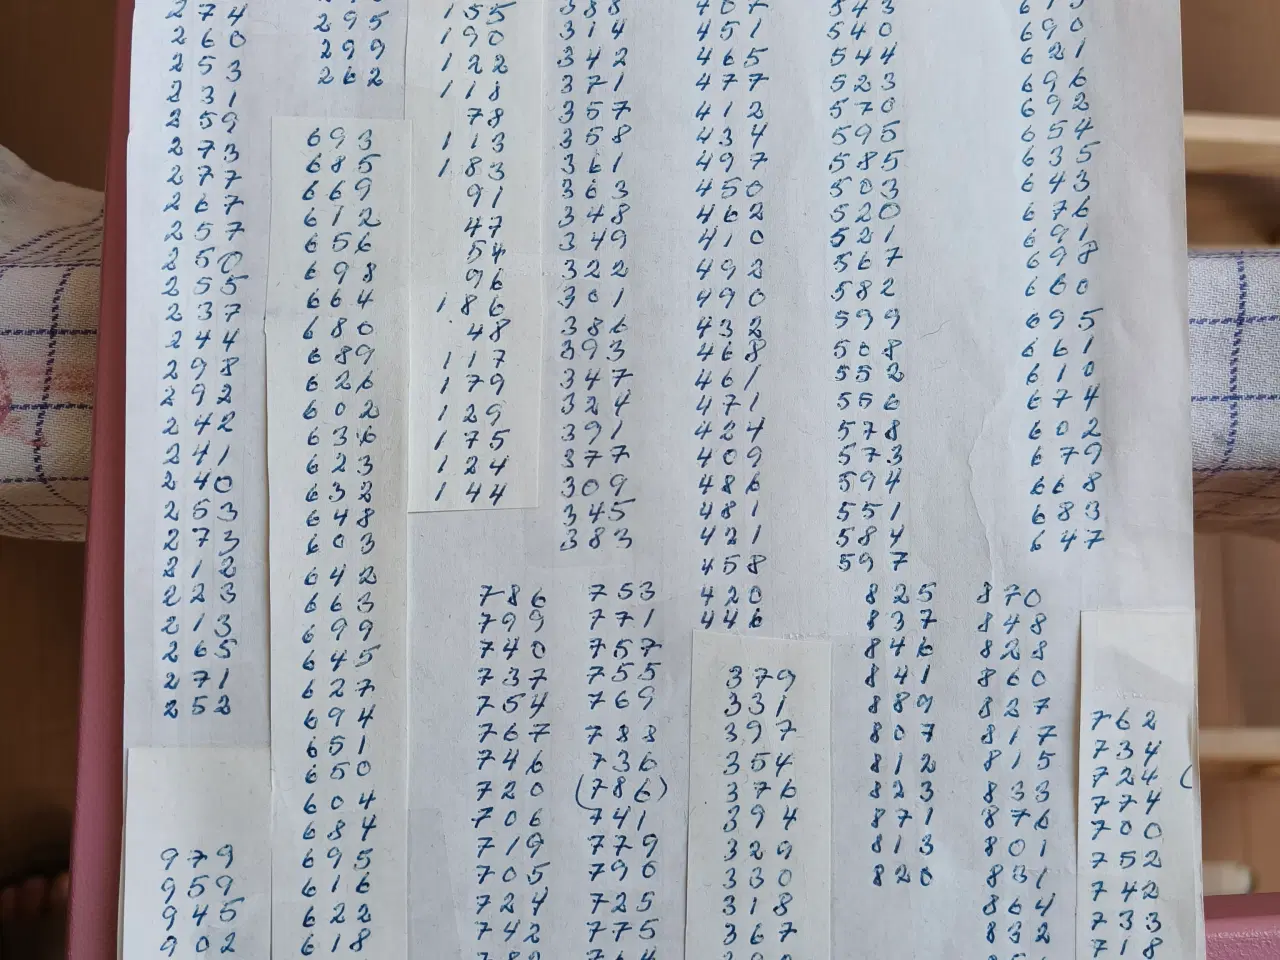 274
260
253
231
259
273
277
267
257
250
255
237
244
298
292
242
241
240
253
273
212
223
213
265
271
252
979
959
945
902
295
299
262
693
685
669
612
656
698
664
680
689
626
602
636
623
632
648
603
642
663
699
645
627
694
651
650
604
684
695
616
622
618
155
190
122
118
78
113
183
91
47
54
96
186
48
117
179
129
175
124
144
786
799
740
737
754
767
746
720
706
719
705
724
742
388
314
342
371
357
358
361
363
348
349
322
301
386
393
347
324
391
377
309
345
383
753
771
757
755
769
788
736
(786)
741
779
790
725
775
451
465
477
412
434
497
450
462
410
492
490
432
468
461
471
424
409
486
481
421
458
420
446
379
331
397
354
376
394
329
330
318
367
543
540
544
523
570
595
585
503
520
521
567
582
599
508
552
556
578
573
594
551
584
597
825
837
846
841
889
807
812
823
871
813
820
690
621
696
692
654
635
643
676
691
698
660
695
661
610
674
602
679
668
683
647
870
848
828
860
827
817
815
833
876
801
831
864
832
762
734
724
774
700
752
742
733
718